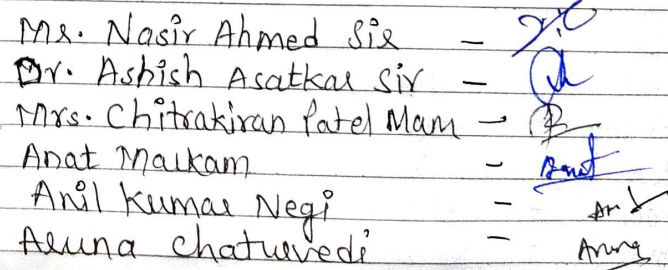 Mr. Nasir Ahmed Sir -
Dr. Ashish Asatkar Sir -
Mrs. Chitrakiran Patel Mam -
Anat Malkam - Anat
Anil Kumar Negi -
Aruna Chaturvedi - Aruna